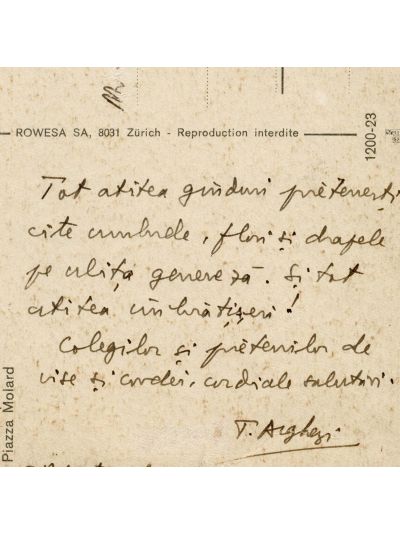 ROWESA SA, 8031 Zürich - Reproduction interdite
1200-23
Piazza Molard
Tot atitea gînduri prètenești
cîte umbrele, flori și drapele
pe ulița genereză. Și tot
atitea îmbrățișeri!
Colegilor și prètenilor de
vise și cordei, cordiale salutări.
T. Arghezi